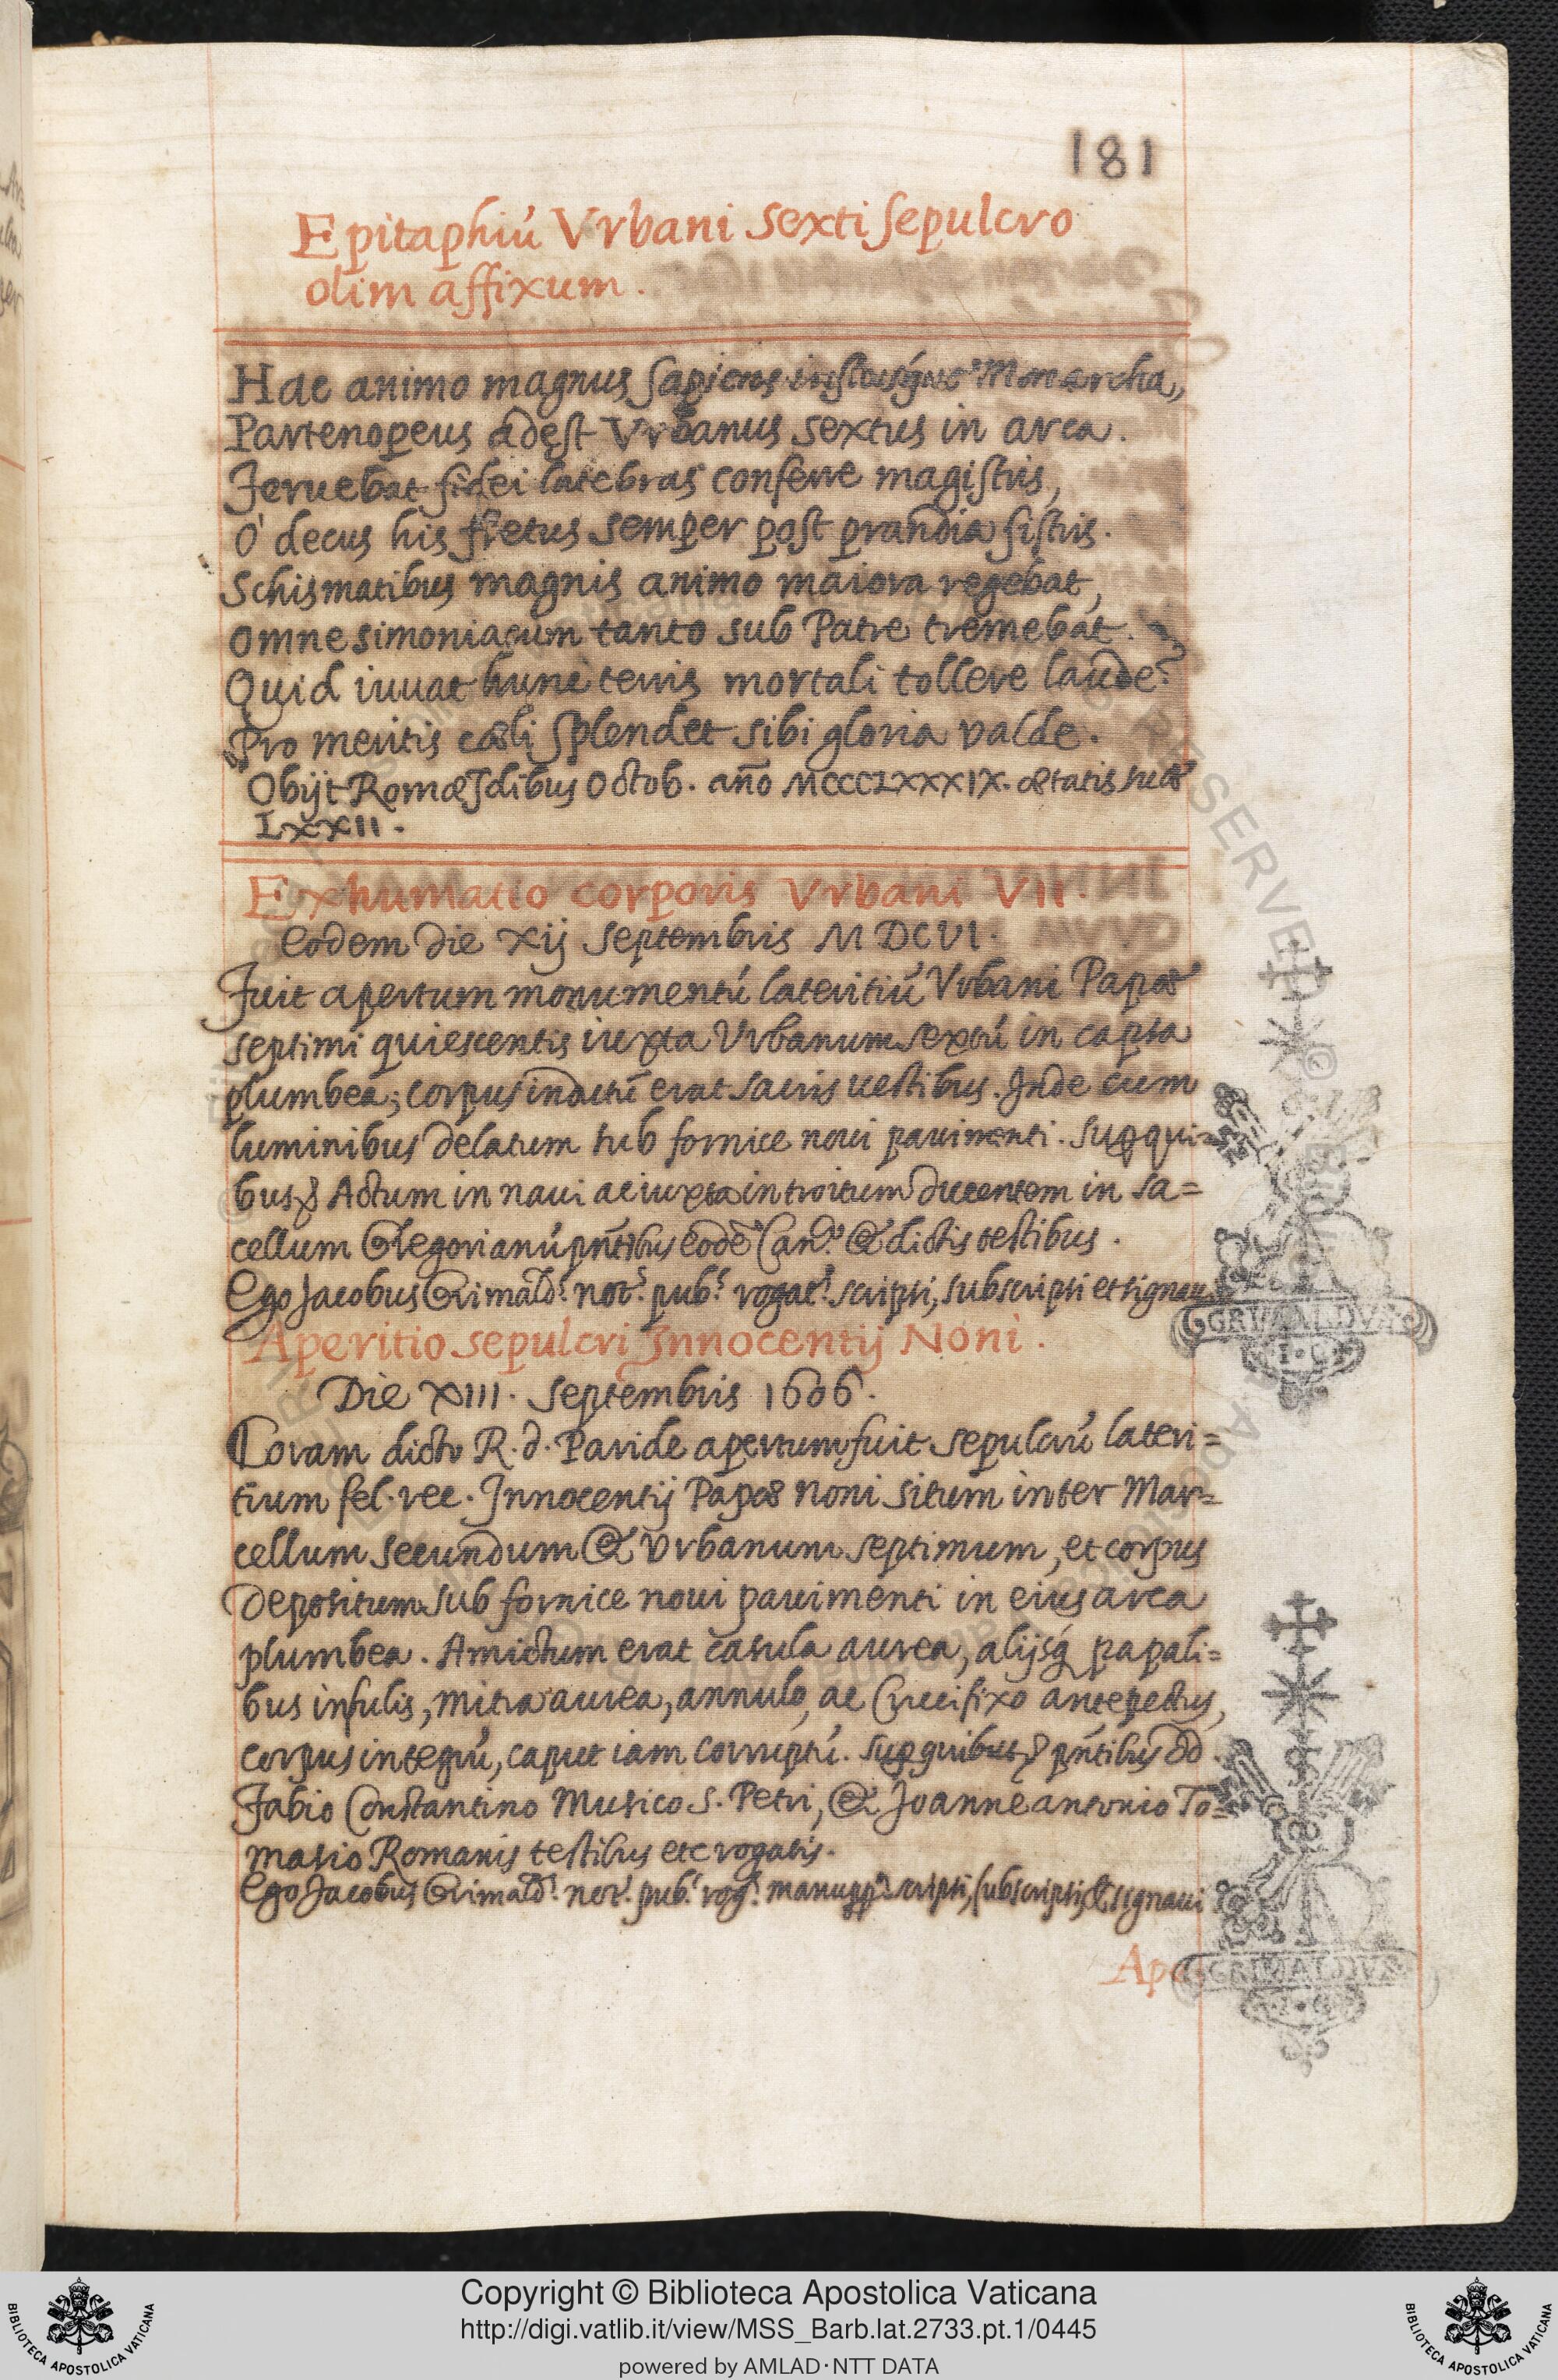 181
Epitaphiú Vrbani Sexti sepulcro
olim affixum.
Hac animo magnus sapiens iustusq́ue Monarcha,
Partenopeus adest Vrbanus Sextus in arca.
Feruebat fidei latebras conferre magistris,
O' decus his fretus semper post prandia sistris.
Schismatibus magnis animo maiora regebat,
omne simoniacum tanto sub Patre tremebat.
Quid iuuat hunc terris mortali tollere laude?
Pro meritis cæli splendet sibi gloria valde.
Obijt Romæ Idibus Octob. año MCCCLXXXIX. ætatis suæ
LXXII.
Exhumatio corporis Vrbani VII.
Eodem die xij Septembris MDCVI.
Fuit apertum monumentú lateritiú Vrbani Papæ
septimi quiescentis iuxta Vrbanum sextú in capsa
plumbea; corpus indutú erat sacris uestibus. Inde cum
luminibus delatum sub fornice noui pauimenti. Sup qui=
bus Actum in naui ac iuxta introitum ducentem in Sa=
cellum Gregorianú pñtibus eodē Can.º & dictis testibus.
Ego Jacobus Grimald.s not.s pub.s rogat.s scripsi, subscripsi et signaui
GRIMALDVS
I.C.
Aperitio sepulcri Innocentij Noni.
Die XIII. Septembris 1606.
Coram dicto R. d. Paride apertum fuit sepulcrú lateri=
tium fel. rec. Innocentij Papæ noni situm inter Mar=
cellum secundum & Vrbanum septimum, et corpus
depositum sub fornice noui pauimenti in eius arca
plumbea. Amictum erat casula aurea, alijsq́ papali=
bus infulis, mitra aurea, annulo, ac Crucifixo ante pectus,
corpus integrú, caput iam corruptú. Sup quibus pñtibus dd.
Fabio Constantino Musico S. Petri, & Joanne antonio To=
masio Romanis testibus etc rogatis.
Ego Jacobus Grimald.s not.s pub.s rog.s manu pp.a scripsi, subscripsi, & signaui
GRIMALDVS
I.C.
Ape
Copyright © Biblioteca Apostolica Vaticana
http://digi.vatlib.it/view/MSS_Barb.lat.2733.pt.1/0445
powered by AMLAD·NTT DATA
BIBLIOTECA APOSTOLICA VATICANA
BIBLIOTECA APOSTOLICA VATICANA